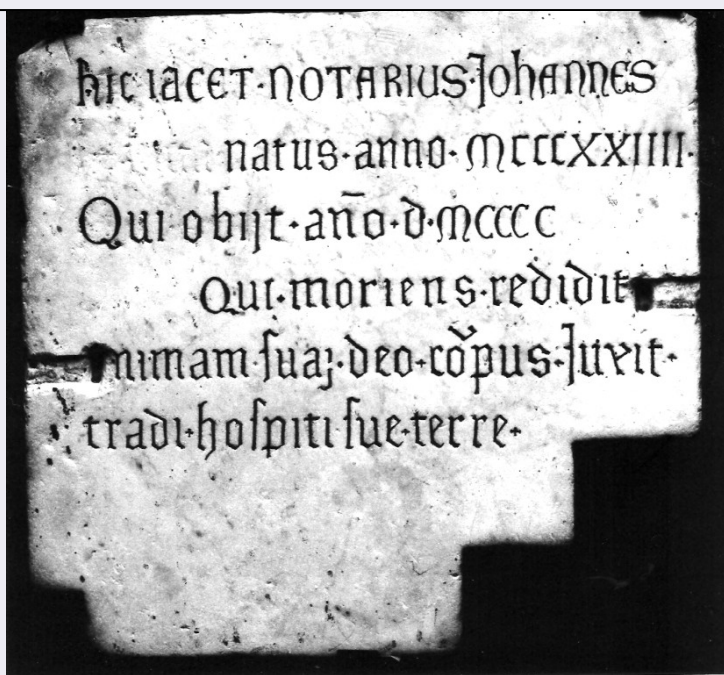 hic iacet·notarius·Johannes
natus·anno·MCCCXXIIII·
Qui obijt·año·d·MCCCC
Qui·moriens·redidit
nimam·ſuaȝ·deo·cōpus·Juxit·
tradi·hoſpiti ſue·terre·